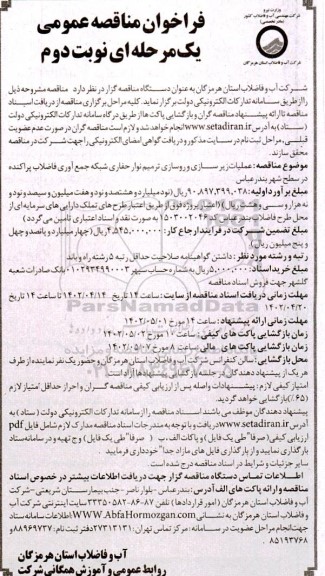 وزارت نیرو
شرکت مهندسی آب و فاضلاب کشور
(مادر تخصصی)
شرکت آب و فاضلاب استان هرمزگان
فراخوان مناقصه عمومی
یک مرحله ای نوبت دوم
شرکت آب و فاضلاب استان هرمزگان به عنوان دستگاه مناقصه گزار در نظر دارد مناقصه مشروحه ذیل
را از طریق سامانه تدارکات الکترونیکی دولت برگزار نماید. کلیه مراحل برگزاری مناقصه از دریافت اسناد
مناقصه تا ارائه پیشنهاد مناقصه گران و بازگشایی پاکت ها از طریق درگاه سامانه تدارکات الکترونیکی دولت
(ستاد) به آدرس www.setadiran.ir انجام خواهد شد و لازم است مناقصه گران در صورت عدم عضویت
قبلی، مراحل ثبت نام در سایت مذکور و دریافت گواهی امضای الکترونیکی را جهت شرکت در مناقصه
محقق سازند
موضوع مناقصه: عملیات زیرسازی و روسازی ترمیم نوار حفاری شبکه جمع آوری فاضلاب پراکنده
در سطح شهر بندرعباس
مبلغ برآورد اولیه: ۹۰،۸۹۷،۳۹۹،۰۳۸ ریال (نود میلیارد و هشتصد و نود و هفت میلیون و سیصد و نود و
نه هزار و سی و هشت ریال)
مبلغ تضمین شرکت در فرآیند ارجاع کار: ۴،۵۴۵،۰۰۰،۰۰۰ ریال (چهار میلیارد و پانصد و چهل
و پنج میلیون ریال)
رتبه و رشته مورد نظر: داشتن گواهینامه صلاحیت حداقل رتبه ۵ رشته راه و باند
مبلغ خرید اسناد: ۵،۰۰۰،۰۰۰ ریال به شماره حساب سپهر ۰۱۰۲۹۳۴۹۹۰۰۰۳ بانک صادرات شعبه
گلشهر جهت فروش اسناد مناقصه
مهلت زمانی دریافت اسناد مناقصه از سایت: ساعت ۱۴ تاریخ ۱۴۰۲/۰۴/۱۴ تا ساعت ۱۴ تاریخ
۱۴۰۲/۰۴/۲۰
مهلت زمانی ارائه پیشنهاد: ساعت ۱۴ مورخ ۱۴۰۲/۰۵/۰۱
زمان بازگشایی پاکت های کیفی: ساعت ۱۷ مورخ ۱۴۰۲/۰۵/۰۲
زمان بازگشایی پاکت های مالی: ساعت ۸ مورخ ۱۴۰۲/۰۵/۰۷
محل بازگشایی: سالن کنفرانس شرکت آب و فاضلاب استان هرمزگان و حضور یک نفر نماینده از طرف
هر یک از پیشنهاد دهندگان در جلسه بازگشایی پیشنهادها آزاد است
امتیاز کیفی لازم: پیشنهادات واصله پس از ارزیابی کیفی مناقصه گران و احراز حداقل امتیاز لازم
(۶۵٪) بازگشایی خواهد گردید.
پیشنهاد دهندگان موظف می باشند اسناد مناقصه را از سامانه تدارکات الکترونیکی دولت (ستاد) به
آدرس www.setadiran.ir دریافت و با توجه به مندرجات اسناد مناقصه مدارک لازم شامل فایل pdf
ارزیابی کیفی (صرفا" طی یک فایل) و پاکات الف، ب (صرفا" طی یک فایل) و ج تهیه و در سامانه ستاد
بارگذاری نمایند و از بارگذاری فایل های مازاد جدا" خودداری فرمایید
سایر جزئیات و شرایط در اسناد مناقصه درج شده است.
اطلاعات تماس دستگاه مناقصه گزار جهت دریافت اطلاعات بیشتر در خصوص اسناد
مناقصه و ارائه پاکت های الف آدرس: بندرعباس - بلوار ناصر - جنب بیمارستان شریعتی - شرکت
آب و فاضلاب استان هرمزگان (امور قراردادها) تلفن ۸۷-۸۶-۳۳۳۵۰۵۸۲ سایت اینترنتی شرکت آب
و فاضلاب استان هرمزگان به نشانی WWW.AbfaHormozgan.com اطلاعات سامانه ستاد
جهت انجام مراحل عضویت در سامانه: مرکز تماس تهران ۲۷۳۱۳۱۳۱ دفتر ثبت نام: ۸۸۹۶۹۷۳۷ و
۸۵۱۹۳۷۶۸
آب و فاضلاب استان هرمزگان
روابط عمومی و آموزش همگانی شرکت
ParsNamadData